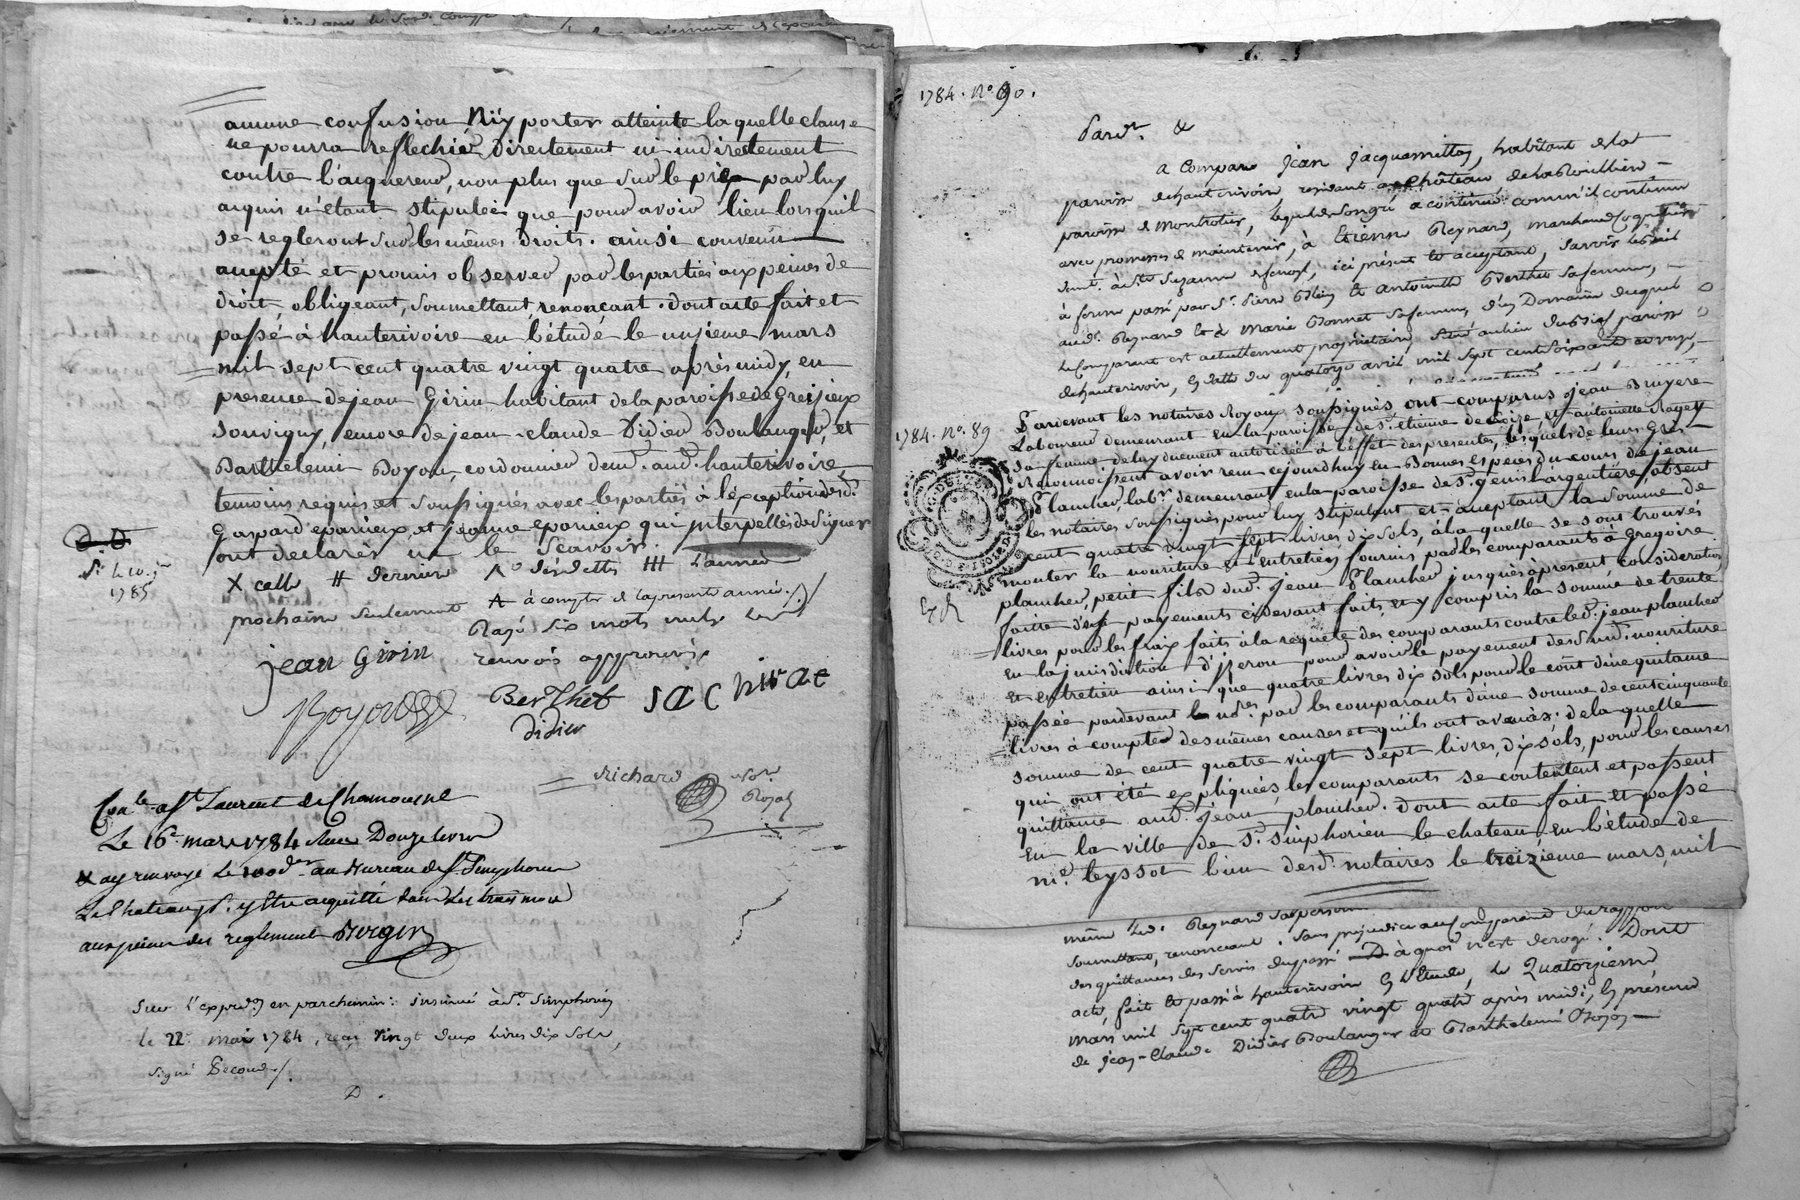 aucune confusion Ni y porter atteinte la quelle clause
ne pourra reflechir directement ni indirectement
contre l'acquereur, non plus que sur le prix par luy
acquis n'étant stipulée que pour avoir lieu lorsquil
se regleront sur les mêmes droits. ainsi convenu
accepté et promis observer par les parties aux peines de
droit, obligeant, soumettant, renonçant. dont acte fait et
passé à hauterivoire en l'étude le unzieme mars
mil sept cent quatre vingt quatre après midy, en
presence de jean Girin habitant de la paroisse de Greizieux
souvigny, encore de jean-claude Didier Boulanger, et
Barthelemi Boyou, cordonnier demt. aud. hauterivoire,
temoins requis et soussignés avec les parties à l'exception desd.
Gaspard eparieux, et jeanne eparieux qui interpellés de signer
ont declarés ne le scavoir.
X celle # derniere des dettes ### L'année
prochaine seulement à compter de la presente année./.
Rayé six mots nuls
renvois approuvés
1785
jean Girin
Boyou
Berthet
Didier
Richard
not.
Royal
Con.le à St. Laurent de Chamousset
Le 16e mars 1784 Reçu Douze livres
ay renvoyé le 100e den. au Bureau de St. Simphorien
Le Chateau pr. y être acquitté dans les trois mois
aux peines des reglements
Sur l'expedon. en parchemin: insinué à St. Simphorien
le 22e mai 1784, reçu vingt deux livres dix sols,
signé Second./.
1784. No. 90.
Pardt. &
a Comparu Jean Jacquemetton, habitant de la
paroisse de hauterivoire residant au château de
paroisse de Montrotier, lequel de son gré a continué comm'il continue
avec promesses de maintenir, à Etienne Reynard, marchand
demt. à Ste. Suzanne, ici présent et acceptant, savoir le bail
à ferme passé par Sr. Pierre et Antoinette Berthet sa femme,
aud. Reynard et à Marie Bonnet sa femme, d'un Domaine duquel
le Comparant est actuellement proprietaire, situé au lieu paroisse
de hauterivoire, en datte du quatorze avril mil sept cent soixante
1784. No. 89
Pardevant les notaires Royaux soussignés ont comparus jean Bruyere
Laboureur demeurant en la paroisse de St. etienne de et antoinette Rogel
sa femme de luy duement autorisée à l'effet des presentes, lesquels de leurs gres
Reconnoissent avoir reçu cejourdhuy en Bonnes Especes du cours de jean
Plancher, labr. demeurant en la paroisse de St. genis l'argentiere, absent
les notaires soussignés pour luy stipulant et acceptant la somme de
cent quatre vingt sept livres dix sols, à la quelle se sont trouvés
monter la nouriture et entretien fournis par les comparants à Gregoire
plancher, petit fils dud. jean Plancher jusques à present, consideration
faitte des payements cidevant faits, et y compris la somme de trente
livres pour les fraix faits à la requete des comparants contre led. jean plancher
en la jurisdiction d'jzeron pour avoir le payement desd. nouriture
et entretien ainsi que quatre livres dix sols pour le coût d'une quittance
passée pardevant les nores. par les comparants d'une somme de cent cinquante
livres à compte des mêmes causes et qu'ils ont avouées; de la quelle
somme de cent quatre vingt sept livres, dix sols, pour les causes
qui ont été expliquées, les comparants se contentent et passent
quittance aud. jean plancher. dont acte fait et passé
en la ville de St. simphorien le chateau en l'étude de
me. leyssot l'un desd. notaires le treizieme mars, mil
même led. Reynard sa personne
soumettant, renonceant. Sans préjudice au Comparant du rapport
des quittances des servis du passé à quoi n'est derogé. Dont
acte, fait et passé à hauterivoire en l'Etude, le Quatorzieme
mars mil sept cent quatre vingt quatre après midi, en présence
de Jean-Claude Didier Boulanger et Barthelemi Boyou